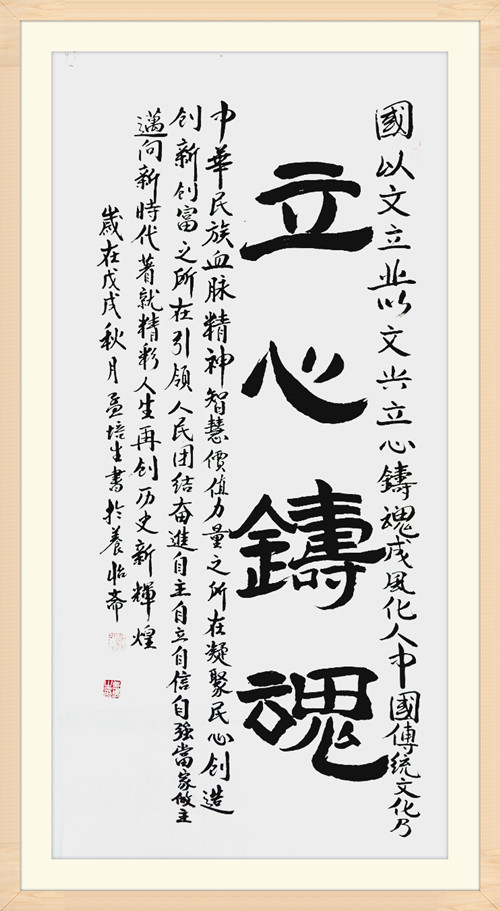 國以文立业以文兴立心鑄魂成風化人中國傳統文化乃
立心鑄魂
中華民族血脉精神智慧價值力量之所在凝聚民心创造
创新创富之所在引領人民团结奋進自主自立自信自强當家做主
邁向新時代著就精彩人生再创历史新輝煌
歲在戊戌秋月孟培生書於養怡斋